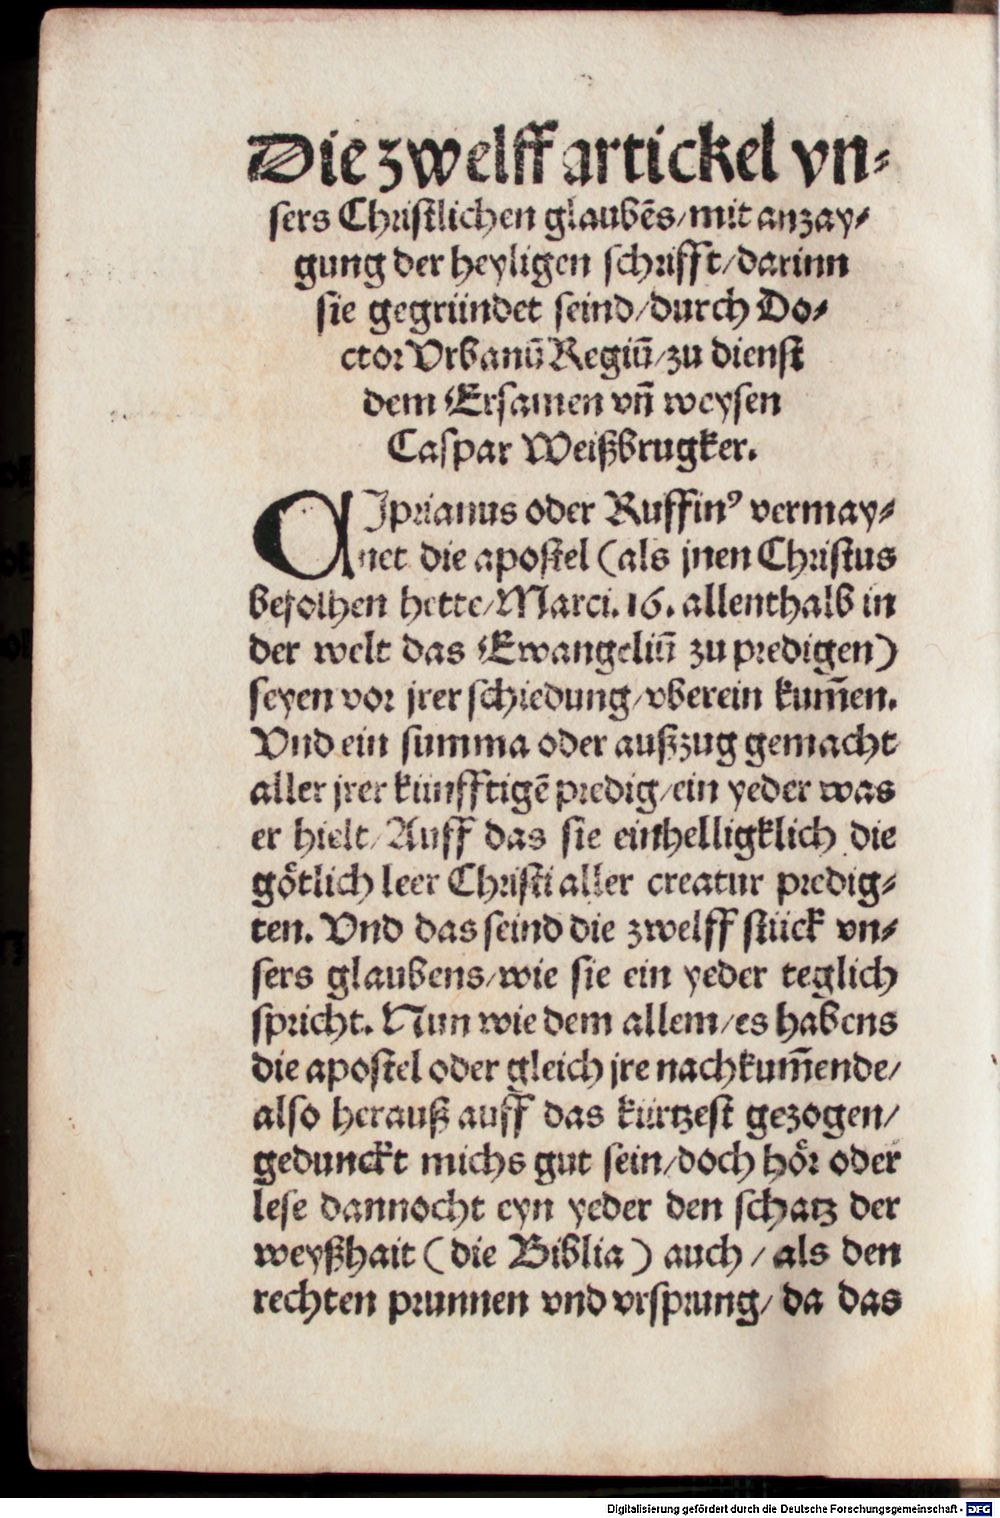 Die zwelff artickel vn⸗
sers Christlichen glaubēs/mit anzay⸗
gung der heyligen schrifft/darinn
sie gegründet seind/durch Do⸗
ctor Vrbanū Regiū/zu dienst
dem Ersamen vn̄ weysen
Caspar Weißbrugker.
CJprianus oder Ruffinꝰ vermay⸗
net die apostel (als jnen Christus
befolhen hette/Marci. 16. allenthalb in
der welt das Ewangeliū zu predigen)
seyen vor jrer schiedung/vberein kum̄en.
Vnd ein summa oder außzug gemacht
aller jrer künfftigē predig/ein yeder was
er hielt/Auff das sie einhelligklich die
goͤtlich leer Christi aller creatur predig⸗
ten. Vnd das seind die zwelff stück vn⸗
sers glaubens/wie sie ein yeder teglich
spricht. Nun wie dem allem/es habens
die apostel oder gleich jre nachkum̄ende/
also herauß auff das kürtzest gezogen/
gedunckt michs gut sein/doch hoͤr oder
lese dannocht eyn yeder den schatz der
weyßhait (die Biblia) auch/als den
rechten prunnen vnd vrsprung/da das
Digitalisierung gefördert durch die Deutsche Forschungsgemeinschaft - DFG